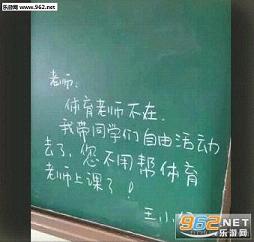 www.962.net
老师:
体育老师不在.
我带同学们自由活动
去了,您不用帮体育
老师上课了!
王小
962.NET
乐游网